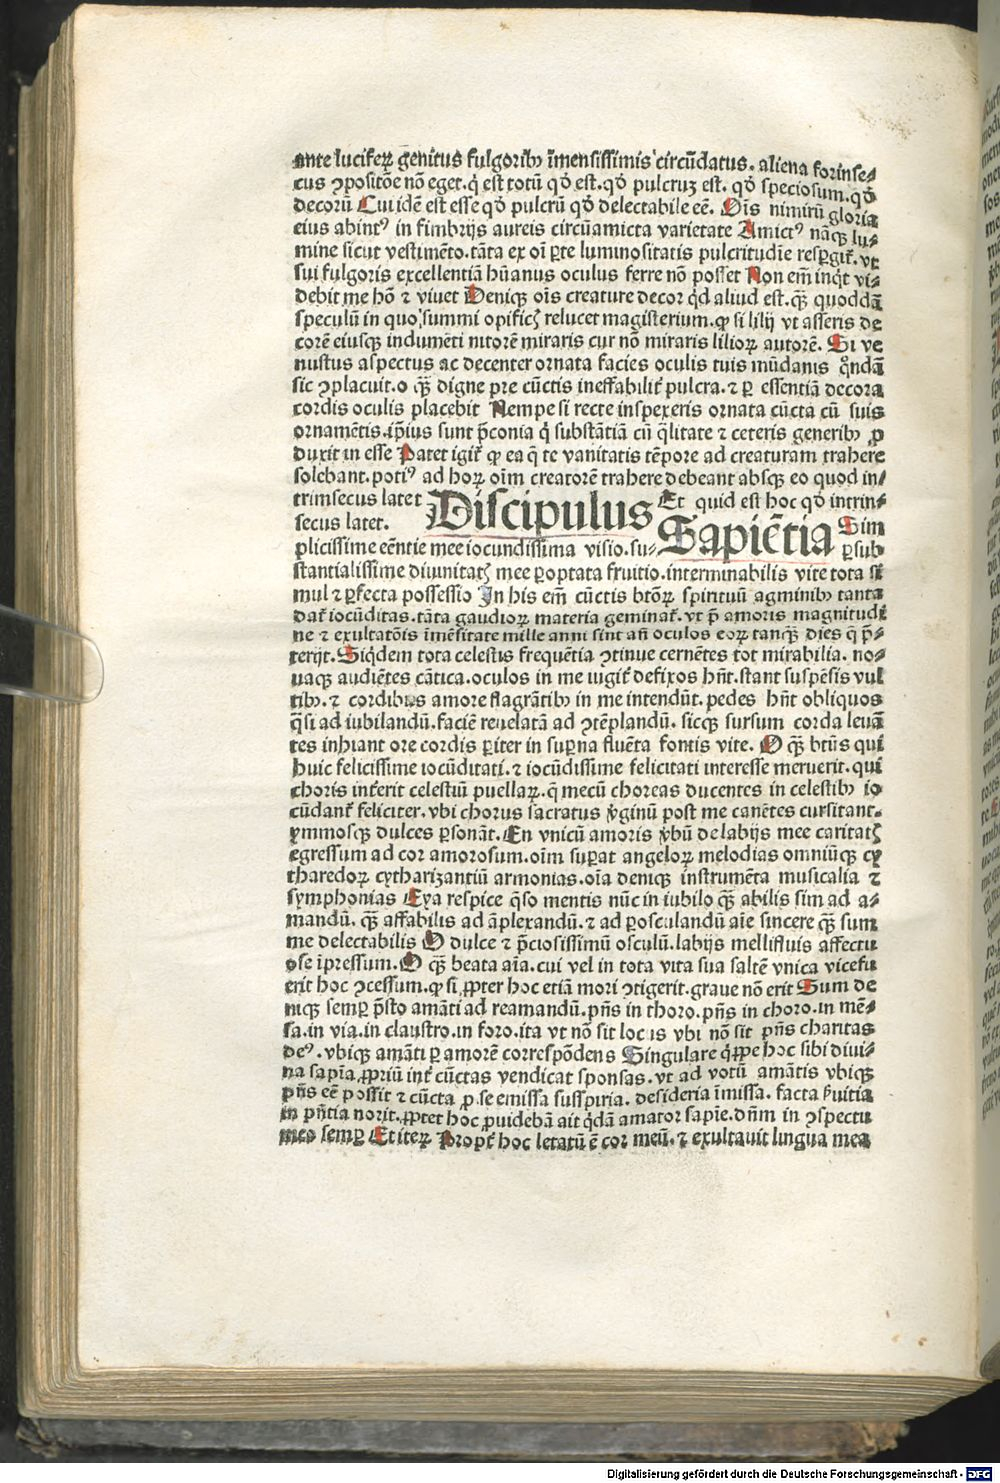 ante luciferꝝ genitus fulgoribꝫ īmensissimis circūdatus. aliena forinse⸗
cus ꝯpositōe nō eget. q̇ est totū qḋ est. qḋ pulcruꝫ est. qḋ speciosum. qḋ
decorū Cui idē est esse qḋ pulcrū qḋ delectabile eē. Oīs nimirū gloria
eius abintꝰ in fimbrijs aureis circūamicta varietate Amictꝰ nāqꝫ lu⸗
mine sicut vestimēto. tāta ex oī ꝑte luminositatis pulcritudīe resꝑgit̄. vt
sui fulgoris excellentiā hūanus oculus ferre nō posset Non em̄ inqt vi⸗
debit me hō ⁊ viuet Deniqꝫ oīs creature decor qd aliud est. qꝫ̄ quoddā
speculū in quo summi opificꝭ relucet magisterium. ꝙ si lilij vt asseris de
corē eiusqꝫ indumēti nitorē miraris cur nō miraris lilioꝝ autorē. Si ve
nustus aspectus ac decenter ornata facies oculis tuis mūdanis qn̄dā
sic ꝯplacuit. o qꝫ̄ digne pre cūctis ineffabilit̄ pulcra. ⁊ ꝑ essentiā decora
cordis oculis placebit Nempe si recte inspexeris ornata cūcta cū suis
ornamētis. ip̄ius sunt p̄conia q̇ substātiā cū q̄litate ⁊ ceteris generibꝫ ꝓ
duxit in esse Patet igit̄ ꝙ ea q̄ te vanitatis tēpore ad creaturam trahere
solebant. potiꝰ ad hoꝝ oīm creatorē trahere debeant absqꝫ eo quod in⸗
trinsecus latet Discipulus Et quid est hoc qḋ intrin⸗
secus latet. Sapiētia Sim
plicissime eēntie mee iocundissima visio. su⸗ ꝑsub
stantialissime diuinitatꝭ mee ꝑoptata fruitio. interminabilis vite tota si
mul ⁊ ꝑfecta possessio In his em̄ cūctis btōꝝ spirituū agminibꝫ tanta
dat̄ iocūditas. tāta gaudioꝝ materia geminat̄. vt p̄ amoris magnitudi
ne ⁊ exultatōis īmēsitate mille anni sint an̄ oculos eoꝝ tanqꝫ̄ dies q̄ p̄⸗
terijt. Siqdem tota celestis frequētia ꝯtinue cernētes tot mirabilia. no⸗
uaqꝫ audiētes cātica. oculos in me iugit̄ defixos hn̄t. stant suspēsis vul
tibꝫ. ⁊ cordibus amore flagrātibꝫ in me intendūt. pedes hn̄t obliquos
q̄si ad iubilandū. faciē reuelatā ad ꝯtēplandū. sicqꝫ sursum corda leuā
tes inhiant ore cordis ꝑiter in suꝑna fluēta fontis vite. O qꝫ̄ btūs qui
huic felicissime iocūditati. ⁊ iocūdissime felicitati interesse meruerit. qui
choris int̄erit celestiū puellaꝝ. q̄ mecū choreas ducentes in celestibꝫ io
cūdant̄ feliciter. vbi chorus sacratus v̄ginū post me canētes cursitant.
ymnosqꝫ dulces ꝑsonāt. En vnicū amoris v̄bū de labijs mee caritatꝭ
egressum ad cor amorosum. oīm suꝑat angeloꝝ melodias omniūqꝫ cy
tharedoꝝ cytharizantiū armonias. oīa deniqꝫ instrumēta musicalia ⁊
symphonias Eya respice qso mentis nūc in iubilo qꝫ̄ abilis sim ad a⸗
mandū. qꝫ̄ affabilis ad āplexandū. ⁊ ad ꝑosculandū aīe sincere qꝫ̄ sum
me delectabilis O dulce ⁊ p̄ciosissimū osculū. labijs mellifluis affectu
ose īpressum. O qꝫ̄ beata aīa. cui vel in tota vita sua saltē vnica vice fu
erit hoc ꝯcessum. ꝙ si ꝓpter hoc etiā mori ꝯtigerit. graue nō erit Sum de
niqꝫ semꝑ p̄sto amāti ad reamandū. pn̄s in thoro. pn̄s in choro. in mē⸗
sa. in via. in claustro. in foro. ita vt nō sit locus vbi nō sit pn̄s charitas
deꝰ. vbiqꝫ amāti ꝑ amorē correspōdens Singulare qꝓpe hoc sibi diui⸗
na sapīa ꝓpriū int̄ cūctas vendicat sponsas. vt ad votū amātis vbiqꝫ
pn̄s eē possit ⁊ cūcta ꝓ se emissa suspiria. desideria īmissa. facta s̄uitia
in pn̄tia norit. ꝓptet hoc ꝓuidebā ait qdā amator sapīe. dn̄m in ꝯspectu
meo semꝑ Et iteꝝ Propt̄ hoc letatū ē cor meū. ⁊ exultauit lingua mea
Digitalisierung gefördert durch die Deutsche Forschungsgemeinschaft - DFG